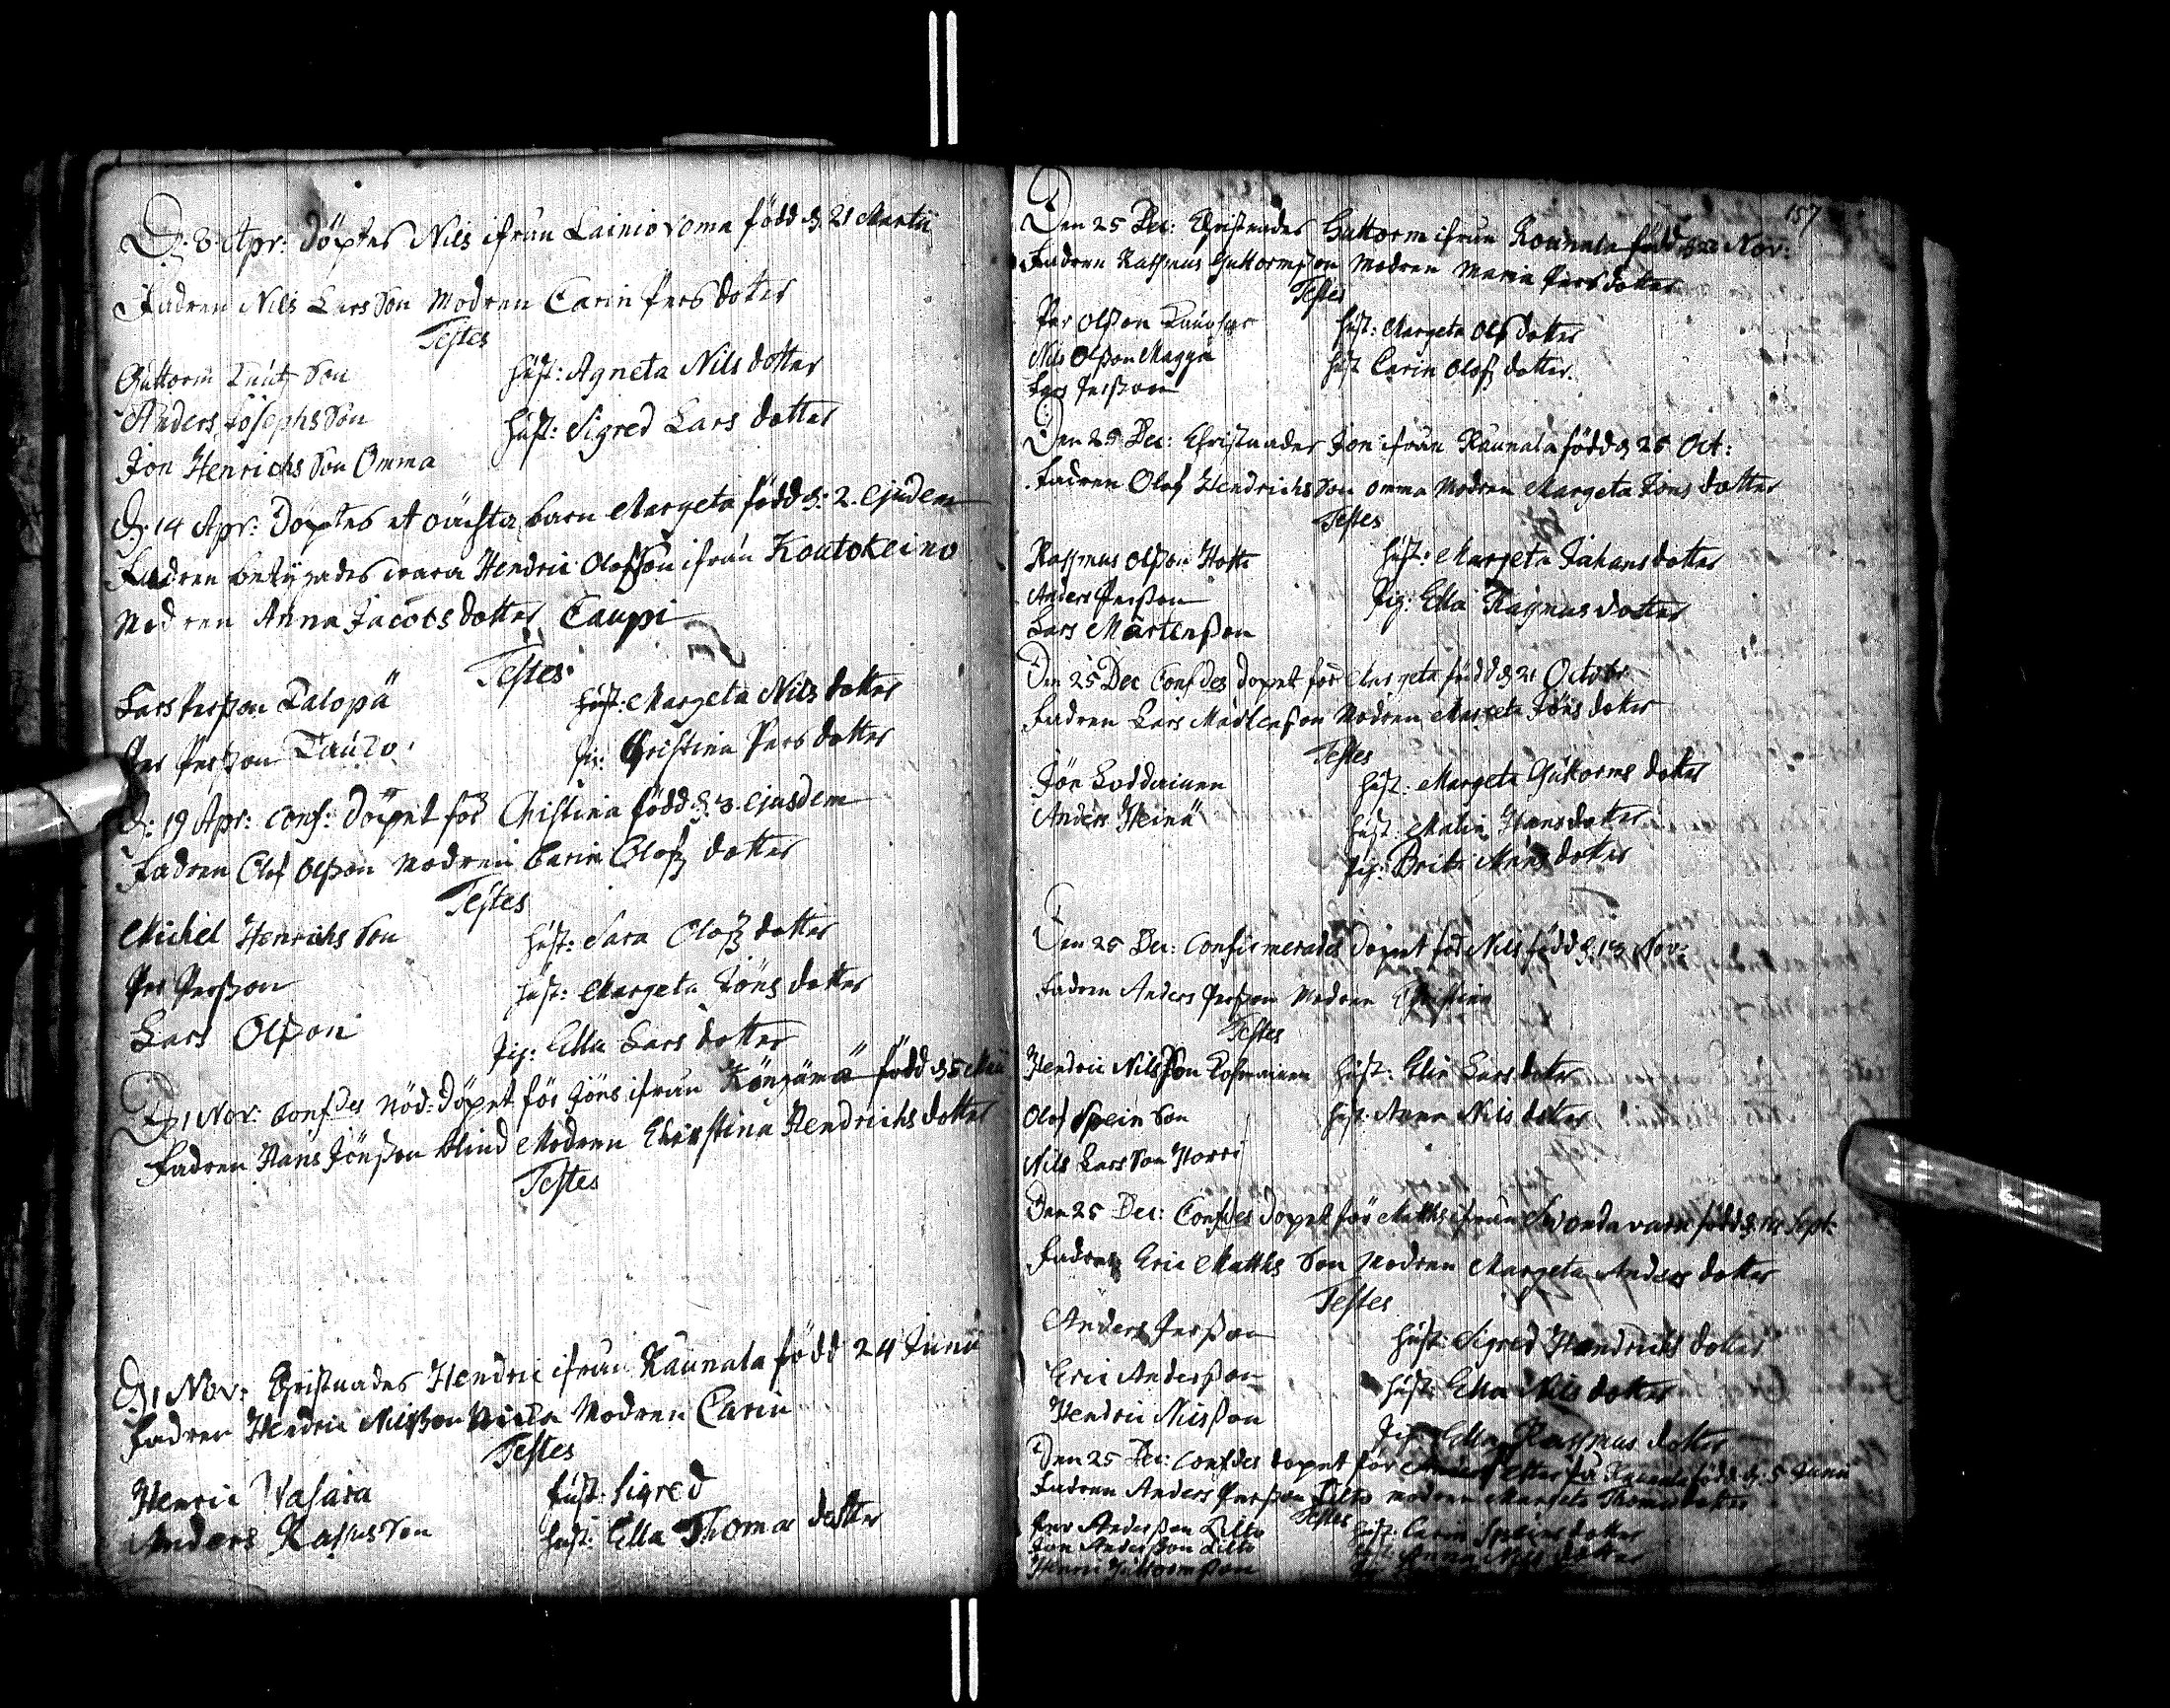 D. 3. Apr: döptes Nils ifrån Lainiovoma född d. 21 Martii
Fadren Nils Larsson Modren Carin Pers dotter
Testes
Guttorm son hust: Agneta Nils dotter
Anders Josephs Son hust: Sigred Lars dotter
Jon Henrichs Son Omma
d. 14 Apr: döptes et oächta barn Margeta född d: 2. Ejusdem
Fadren betygades wara Hendric Olofson ifrån Koutokeino
Modren Anna Jacobs dotter Caupi
Testes
Lars Persson Talopä hust: Margeta Nils dotter
Per Persson Pig: Christina Pers dotter
d: 19 Apr: conf: döpet för Christina född d. 3. ejusdem
Fadren Olof Olsson Modren Carin Olofz dotter
Testes
Michel Henrichs Son hust: Sara Olofz dotter
Per Persson hust: Margeta Jöns dotter
Lars Olsson Pig: Ella Lars dotter
D. 1 Nov: Confdes Nöd-döpet för Jöns ifrån Köngämä född d. 5 Maii
Fadren Hans Jönsson blind Modren Christina Hendrichs dotter
Testes
D. 1 Nov: Christnades Hendric ifrån Raunala född 24 Junii
Fadren Hendric Nilsson Modren Carin
Testes
Henric Vasara hust: Sigred
Anders Rasmus Son hust: Ella Thomas dotter
157
Den 25 Dec: Christnades Guttorm ifrån Rounala född Nov:
Fadren Rasmus Guttormsson Modren Maria Pers dotter
Testes
Per Olsson hust: Margeta Ols dotter
Nils Olsson Maggä hust Carin Olofz dotter
Lars Persson
Den 25 Dec: Christnades Jon ifrån Raunala född d 25 Oct:
Fadren Olof Hendrichs Son Omma Modren Margeta Jöns dotter
Testes
Rasmus Olsson Hotti hust: Margeta Johans dotter
Anders Persson Pig: Ella Rasmus dotter
Lars Mårtensson
Den 25 Dec Confdes döpet för Margeta född d 21 Octobr
Fadren Lars Mårtensson Modren Margeta Jöns dotter
Testes
Jön hust: Margeta Guttorms dotter
Anders Heinä hust: Malin Hans dotter
Pig: Brita Måns dotter
Den 25 Dec: Confirmerades döpet för Nils född d. 13 Nov:
Fadren Anders Persson Modren Christina
Testes
Hendric Nils Son hust: Elin Lars dotter
Olof Spein Son hust: Anna Nils dotter
Nils Lars Son Horri
Den 25 Dec: Confdes döpet för Matths ifrån född d. Sept:
Fadren Eric Matths Son Modren Margeta Anders dotter
Testes
Anders Persson hust: Sigred Hendrichs dotter
Eric Andersson hust: Ella Nils dotter
Hendric Nilsson Pig: Ella Rasmus dotter
Den 25 Dec: Confdes döpet för född d. 5 Junii
Fadren Anders Persson Modren Margeta Thomas dotter
Testes
Per Andersson hust: Carin Speins dotter
Jon Andersson hust: Anna Nils dotter
Henric Guttormsson